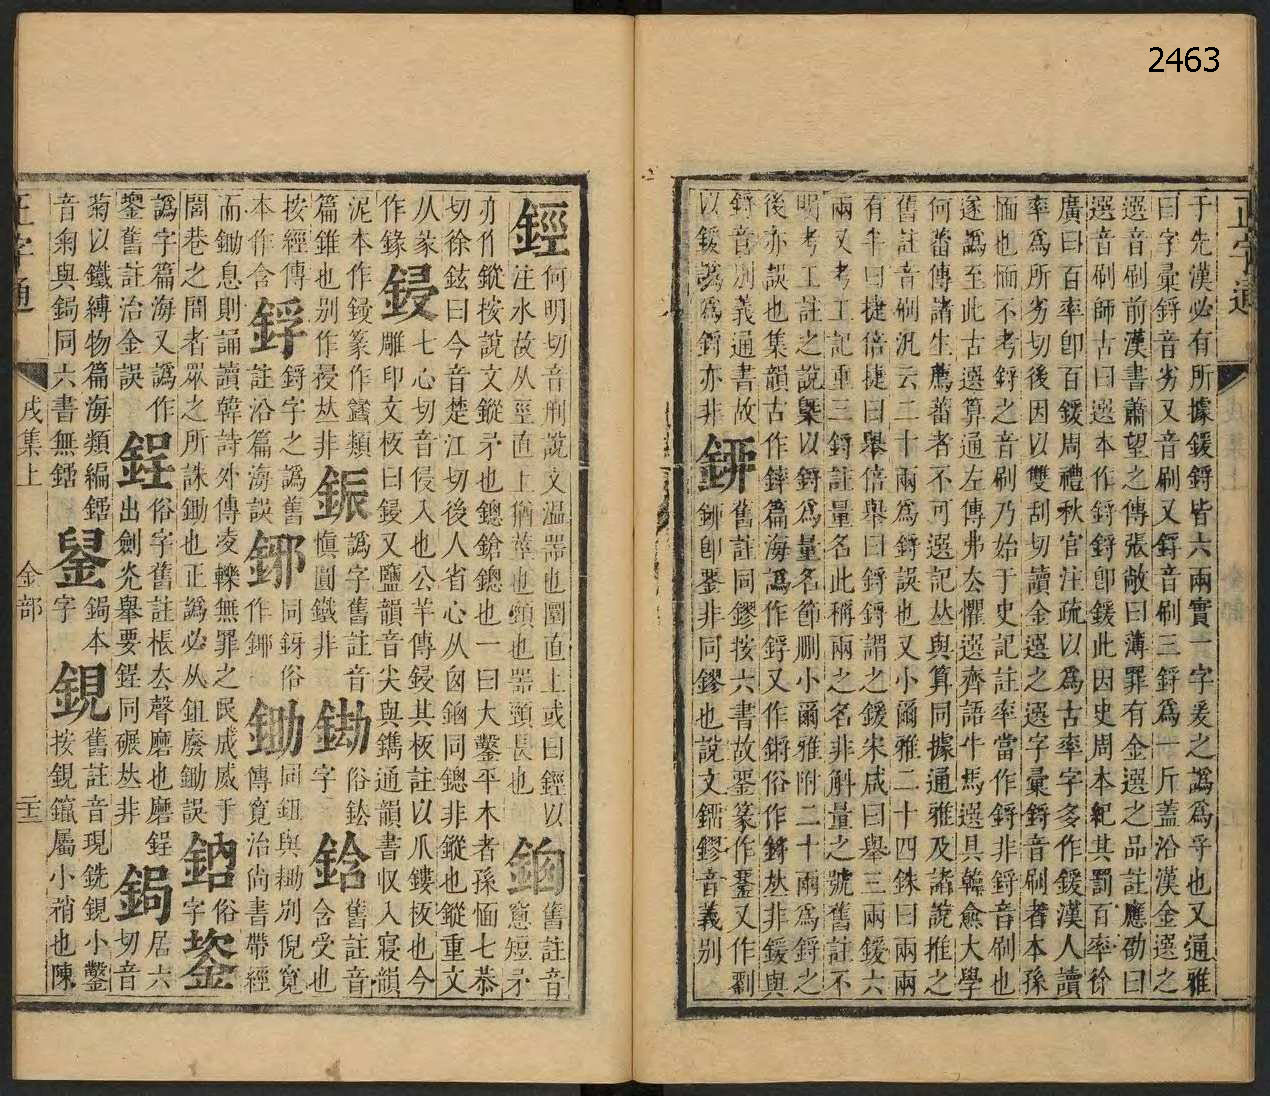 2463
正字通
于先漢必有所據鍰鋝皆六兩實一字爰之譌爲孚也又通雅
曰字彙鋝音劣又音刷又鋝音刷三鋝爲一斤蓋沿漢金選之
選音刷前漢書蕭望之傳張敞曰薄罪有金選之品註應劭曰
選音刷師古曰選本作鋝鋝卽鍰此因史周本紀其罰百率徐
廣曰百率卽百鍰周禮秋官注疏以爲古率字多作鍰漢人讀
率爲所劣切後因以雙刮切讀金選之選字彙鋝音刷者本孫
愐也愐不考鋝之音刷乃始于史記註率當作鋝非鋝音刷也
遂譌至此古選算通左傳弗去懼選齊語牛馬選具韓愈大學
何蕃傳諸生薦蕃者不可選記𠀤與算同據通雅及諸說推之
舊註音刷汎云二十兩爲鋝誤也又小爾雅二十四銖曰兩兩
有半曰捷倍捷曰舉倍舉曰鋝鋝謂之鍰宋咸曰舉三兩鍰六
兩又考工記重三鋝註量名此稱兩之名非斛量之號舊註不
明考工註之說槩以鋝爲量名節删小爾雅附二十兩爲鋝之
後亦誤也集韻古作鋝篇海譌作鋝又作鋝俗作鋝𠀤非鍰與
鋝音別義通書故
以鍰譌爲鋝亦非
舊註同鏐按六書故
非同鏐也說文鏐音義別
鋞
何明切音刑說文溫器也圜直上或曰鋞以
注水故从巠直上猶莖也頸也器頸長也
舊註音
窻短矛
亦作鏦按說文鏦矛也鏓鎗鏓也一曰大鑿平木者孫愐七恭
切徐鉉曰今音楚江切後人省心从囪鏓同鏓非鏦也鏦重文
从彖
作鐌
鋟
七心切音侵入也公羊傳鋟其板註以爪鏤板也今
雕印文板曰鋟又鹽韻音尖與鐫通韻書収入寢韻
泥本作鋟篆作類
篇錐也別作𠀤非
鋠
譌字舊註音
愼圓鐵非
鋤
俗
字
鋡
舊註音
含受也
按經傳
本作含
鋝
鋝字之譌舊
註沿篇海誤
鋣
同釾俗
作鎁
鋤
同鉏與耡別倪寬
傳寬治尚書帶經
而鋤息則誦讀韓詩外傳凌轢無罪之民成威于
閭巷之間者眾之所誅鋤也正譌必从鉏廢鋤誤
俗
字
譌字篇海又譌作
舊註治金誤
鋥
俗字舊註棖去聲磨也磨鋥
出劍光舉要鋥同碾𠀤非
鋦
居六
切音
菊以鐵縛物篇海類編鋦本
音匊與鋦同六書無
字
鋧
舊註音現銑鋧小鑿
按鋧鑯屬小矟也陳
正字通
戌集上
金部
二十三